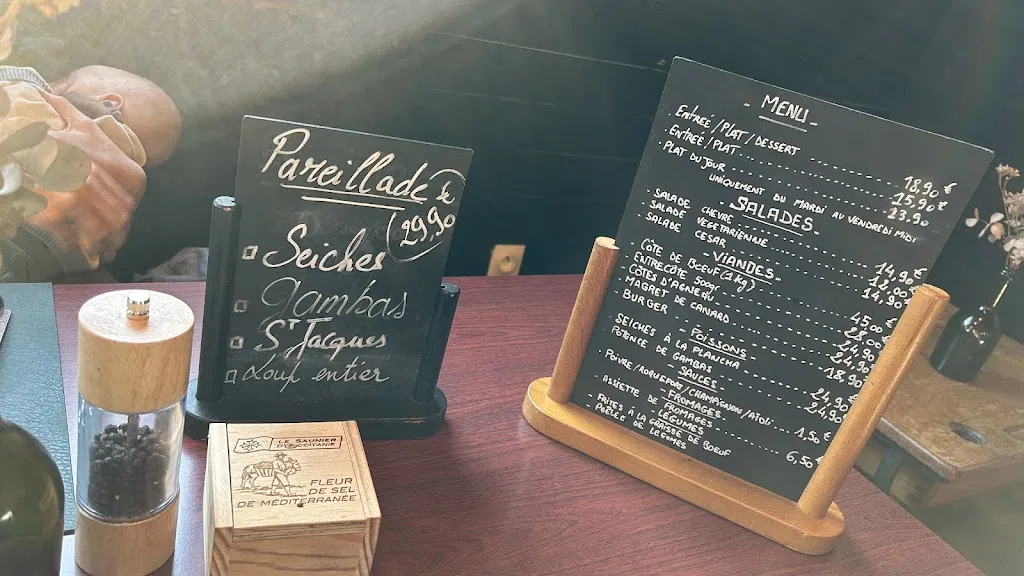 Pareillade
29,90
Seiches
Gambas
St Jacques
Loup entier
LE SAUNIER
D'OCCITANIE
FLEUR
DE SEL
DE MÉDITERRANÉE
- MENU -
ENTREÉ/PLAT/DESSERT 18,90 €
ENTREÉ/PLAT 15,90 €
PLAT DU JOUR 13.90
UNIQUEMENT DU MARDI AU VENDREDI MIDI
- SALADES -
SALADE CHEVRE 14,90 €
SALADE VEGETARIENNE
SALADE CESAR 14.90
- VIANDES -
CÔTE DE BOEUF (1kg) 45,00 €
ENTRECÔTE 300gr 22,00
CÔTES D'AGNEAU
MAGRET DE CANARD
BURGER 18,90
- POISSONS -
SEICHES À LA PLANCHA 24,9 €
POTENCE DE GAMBAS 24,90
SAUCES
POIVRE/ROQUEFORT/CHAMPIGNON/AÏOLI 1,50 €
FROMAGES
ASSIETTE DE FROMAGES 6,50
LÉGUMES
FRITES À LA GRAISSE DE BOEUF
POÊLÉ DE LÉGUMES